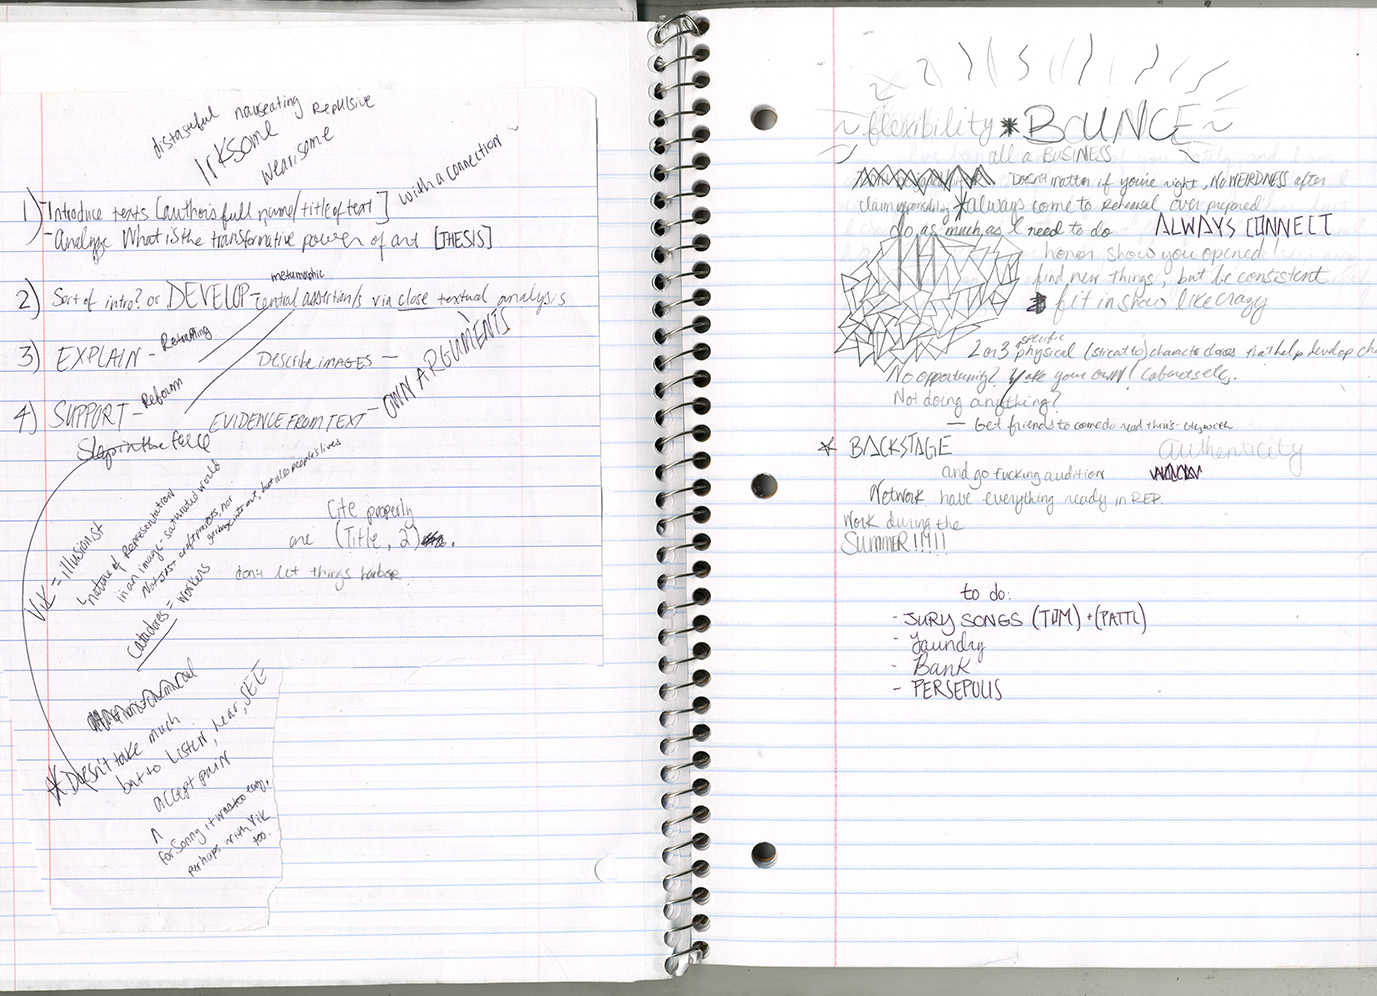 distasteful nauseating Repulsive
Irksome
wearisome
with a connection
1) - Introduce texts [author's full name/title of text]
- Analyze What is the transformative power of art [THESIS]
metamorphic
2) Sort of intro? or DEVELOP central assertion/s via close textual analysis
3) EXPLAIN - Reframing
Describe IMAGES - OWN ARGUMENTS
4) SUPPORT - Reform
EVIDENCE FROM TEXT -
Slap in the face
Vik = illusionist
nature of Representation
in an image-saturated world
Not just
garbage into art, but also people's lives
catadores = workers
Cite properly
are (Title, 2)
don't let things harbor
* Doesn't take much
but to LISTEN, hear, SEE
accept pain
for Sonny it was too easy.
perhaps with Vik
too.
~ flexibility * BOUNCE ~
all a BUSINESS
Doesn't matter if you're right, NO WEIRDNESS after
claim responsibility * always come to Rehearsal over prepared
do as much as I need to do ALWAYS CONNECT
honor show you opened
find new things, but be consistent
fit in show like crazy
specific
2013 physical character choices that help develop
No opportunity? Make your own! Cabarets etc.
Not doing anything?
- Get friends to come do read thru's
* BACKSTAGE authenticity
and go fucking audition
Network. have everything ready in REP.
Work during the
SUMMER!!!!!
to do:
- JURY SONGS (TIM) + (PATTI)
- Laundry
- Bank
- PERSEPOLIS